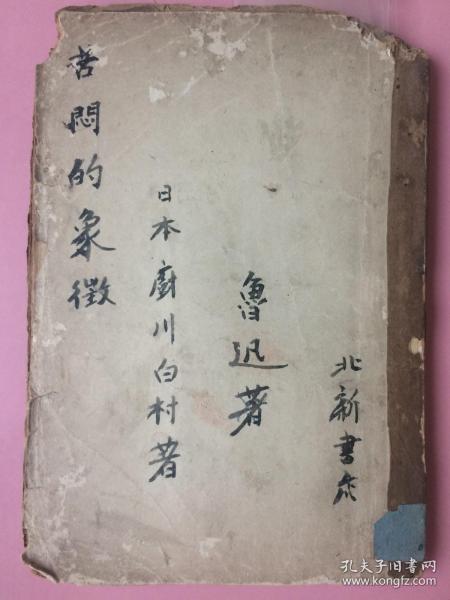 苦悶的象徵
日本廚川白村著
魯迅著
北新書局
孔夫子旧书网
www.kongfz.com